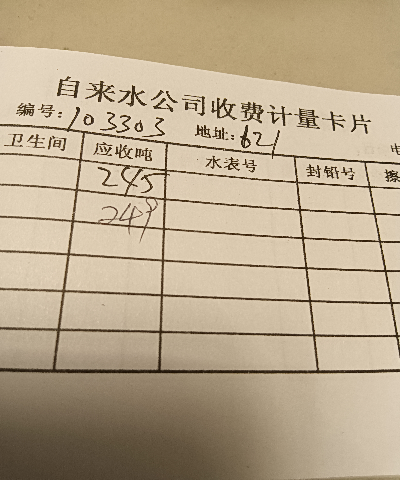 自来水公司收费计量卡片
编号: 103303 地址: 621
卫生间 应收吨 水表号 封铅号
245
249